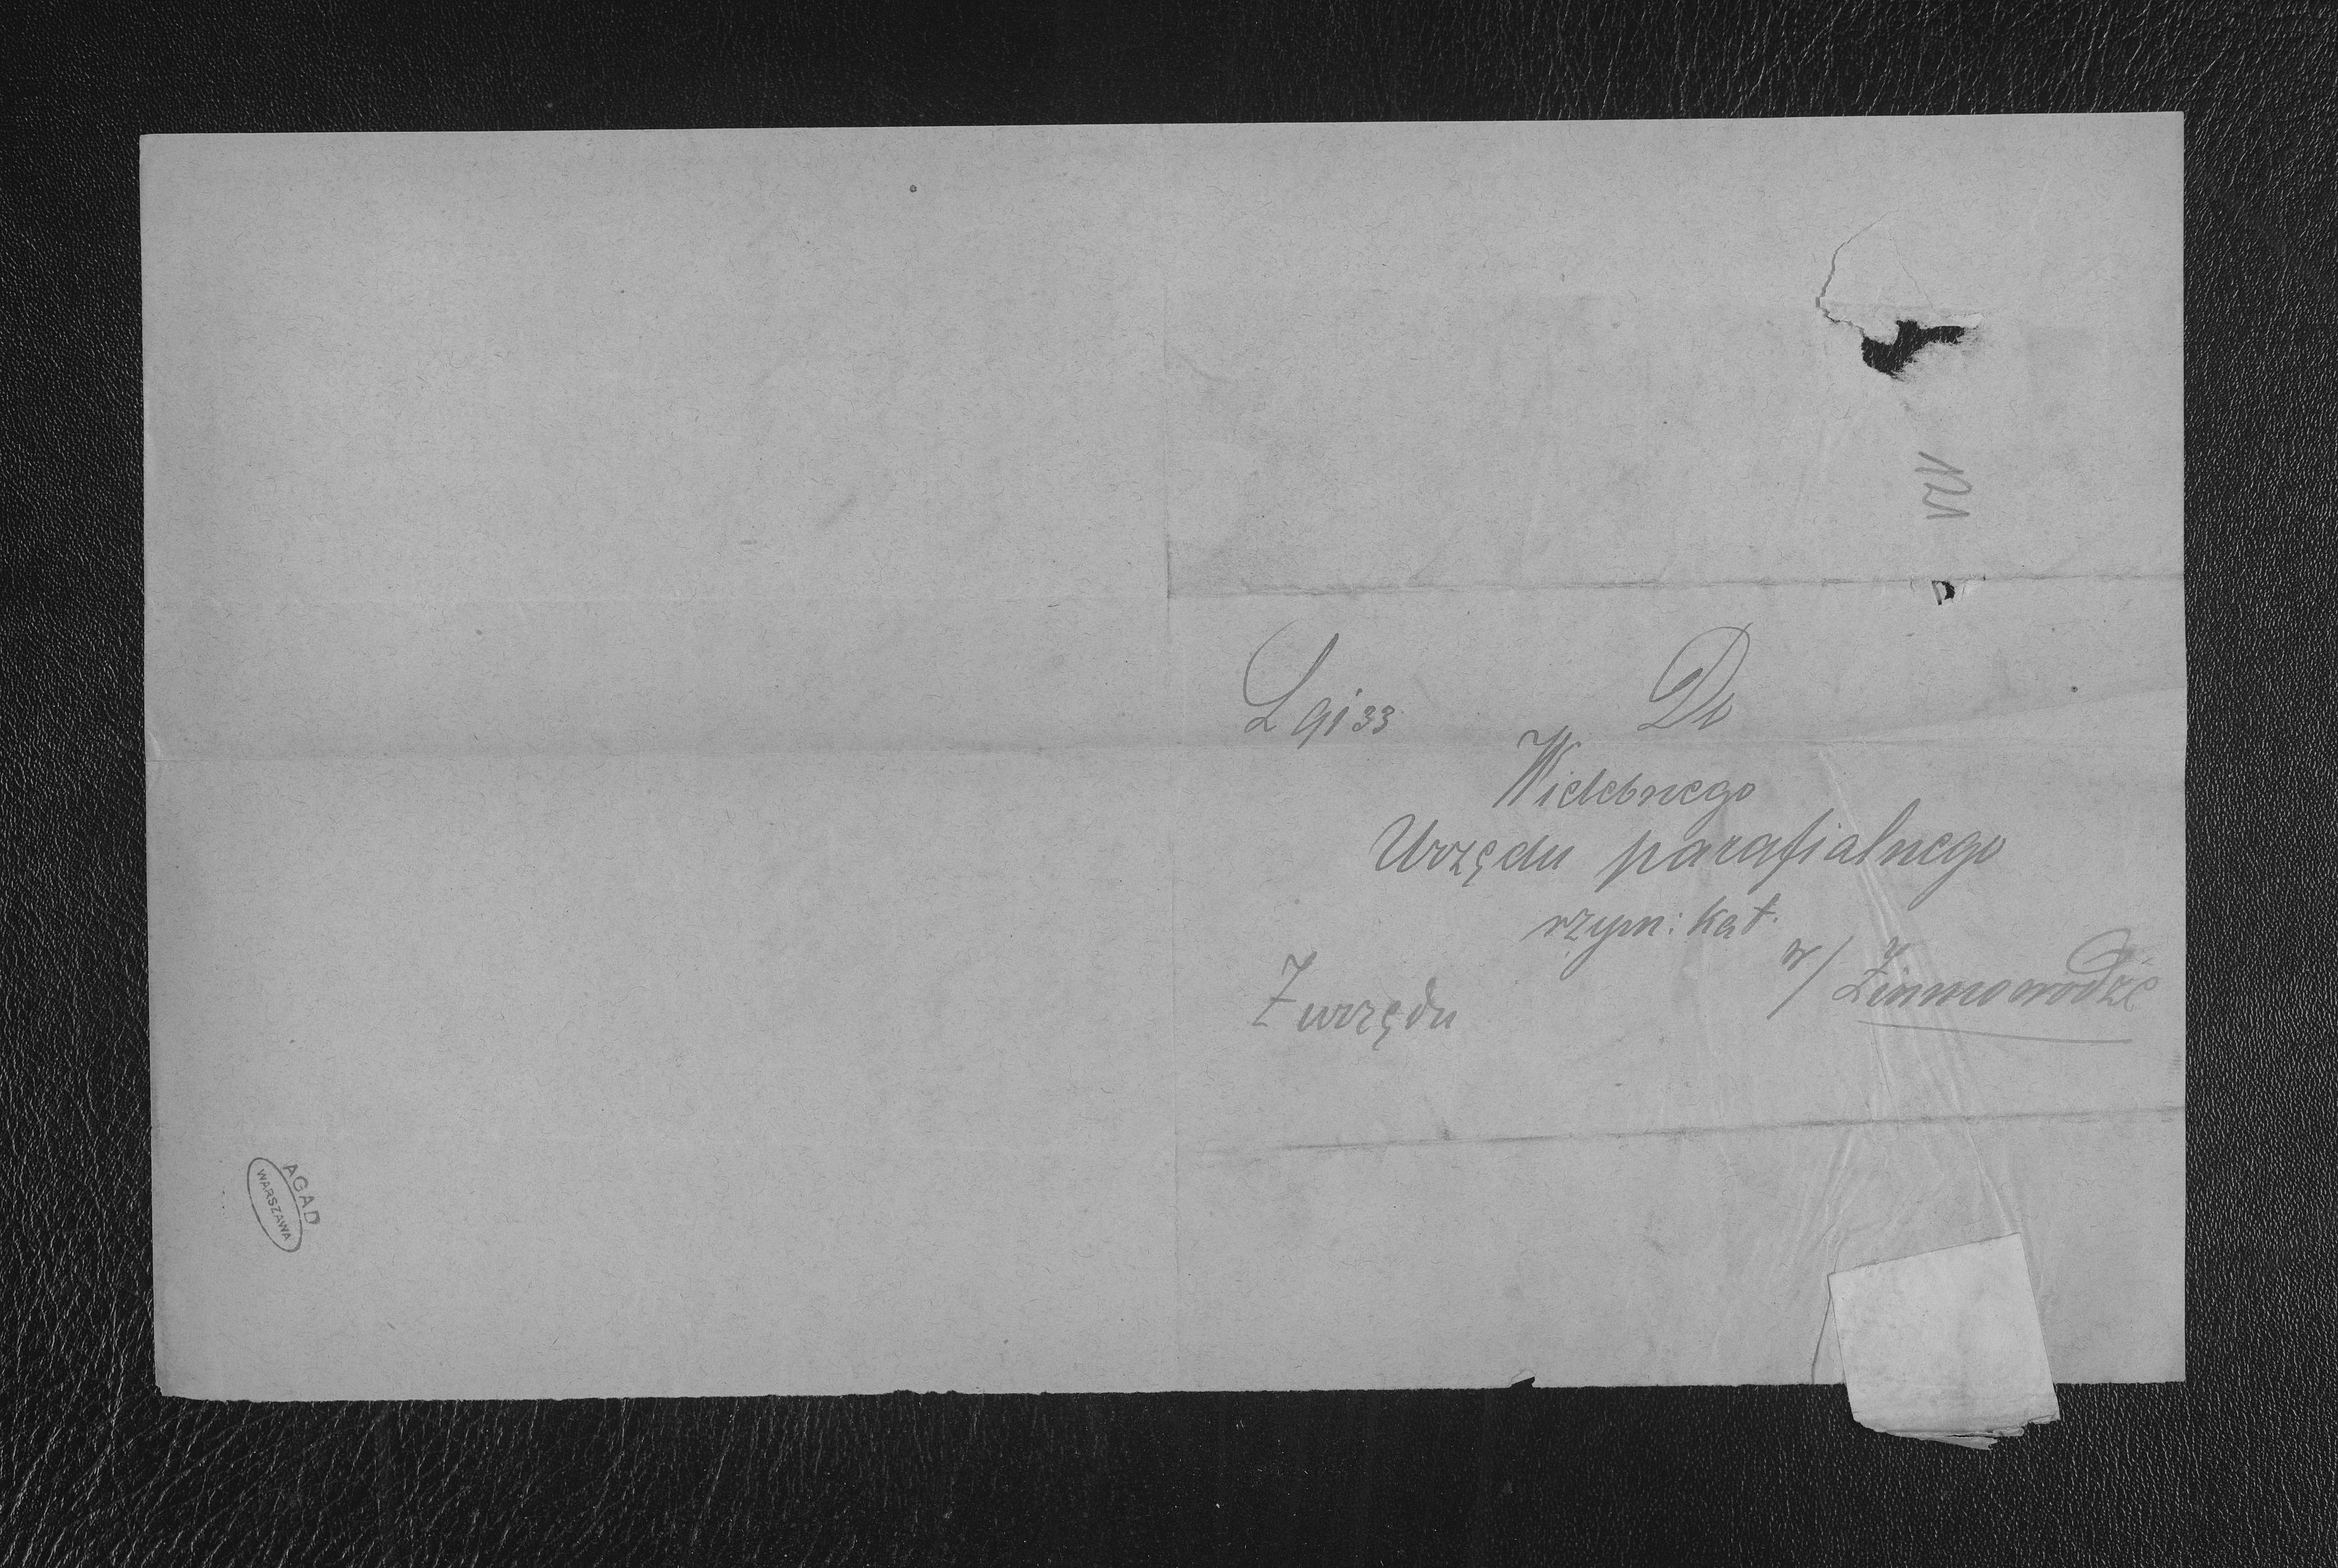 121
L 9133 Do
Wielebnego
Urzędu parafialnego
rzym: kat.
w/ Zimnowodzie
Z urzędu
AGAD
WARSZAWA